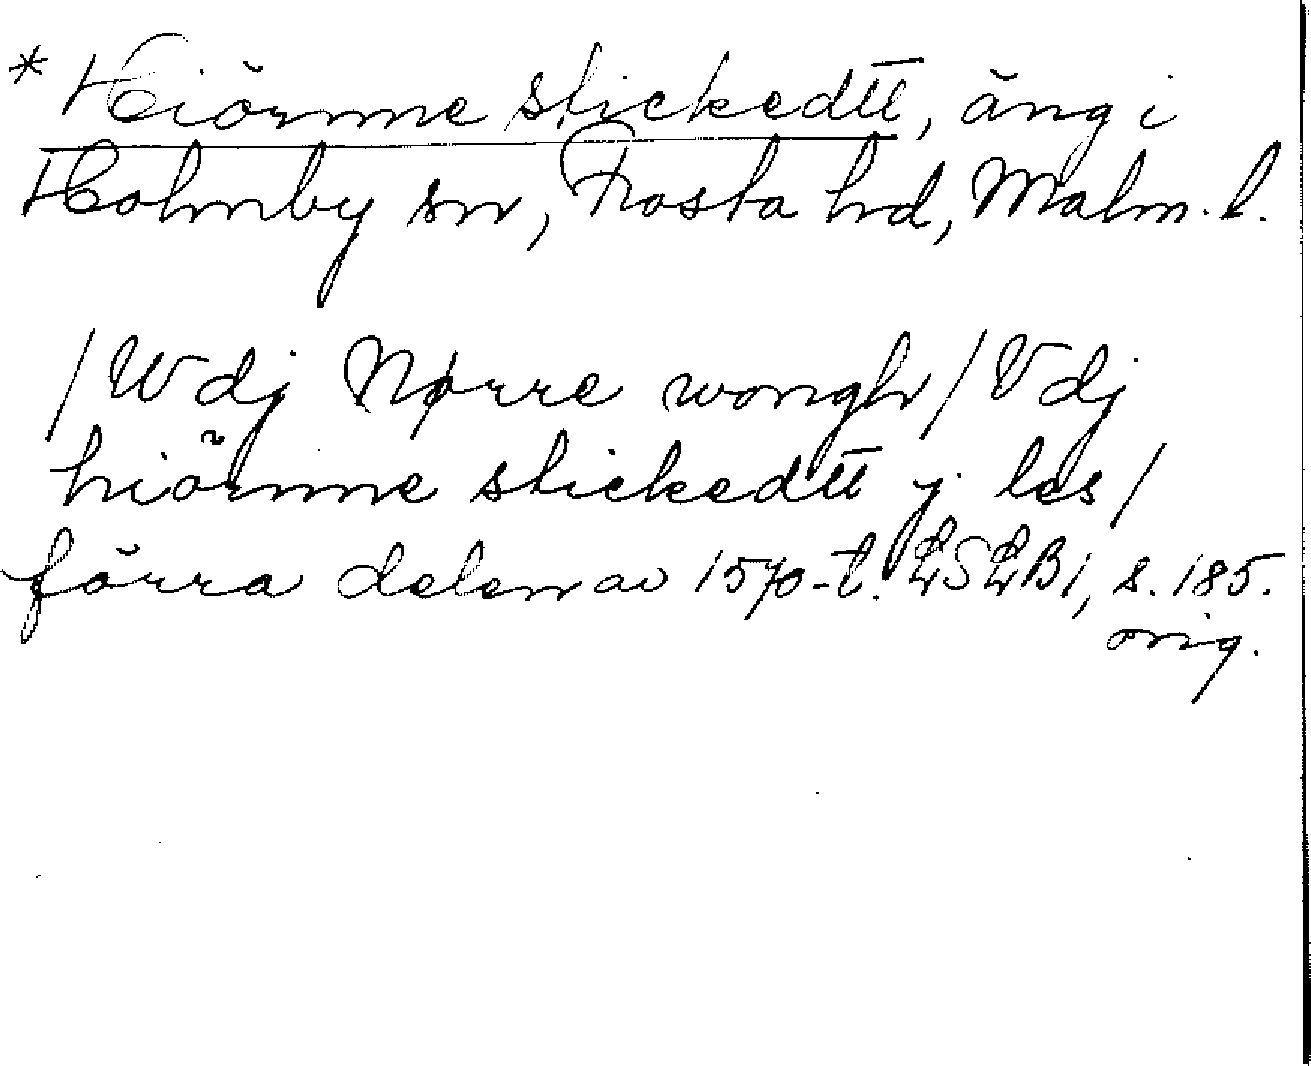 * Hiörnne stickedtt, äng i
Holmby sn, Frosta hd, Malm. l.
/Wdj Nørre wongh/Vdj
hiörnne stickedtt j les/
förra delen av 1570-t. LSLB1, s. 185.
orig.